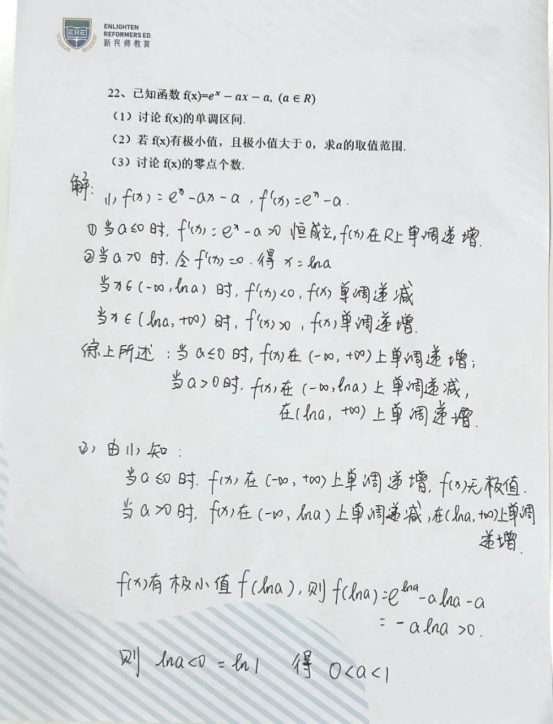 ENLIGHTEN
REFORMERS ED.
新民师教育
22、已知函数 f(x)=eˣ − ax − a, (a ∈ R)
（1）讨论 f(x)的单调区间.
（2）若 f(x)有极小值，且极小值大于 0，求a的取值范围.
（3）讨论 f(x)的零点个数.
解: (1) f(x) = eˣ-ax-a , f'(x)=eˣ-a.
①当a≤0时, f'(x)=eˣ-a>0 恒成立, f(x)在R上单调递增.
②当a>0时, 令f'(x)=0. 得 x=lna
当x∈(-∞, lna) 时, f'(x)<0, f(x) 单调递减
当x∈(lna, +∞) 时, f'(x)>0, f(x)单调递增.
综上所述: 当a≤0时, f(x)在 (-∞, +∞)上单调递增;
当a>0时. f(x)在 (-∞, lna) 上单调递减,
在(lna, +∞) 上单调递增.
(2) 由(1)知:
当a≤0时. f(x)在 (-∞, +∞)上单调递增, f(x)无极值.
当a>0时. f(x)在 (-∞, lna)上单调递减,在(lna,+∞)上单调
递增.
f(x)有极小值f(lna), 则 f(lna)=e^{lna}-alna-a
= -alna>0.
则 lna<0 = ln1 得 0<a<1